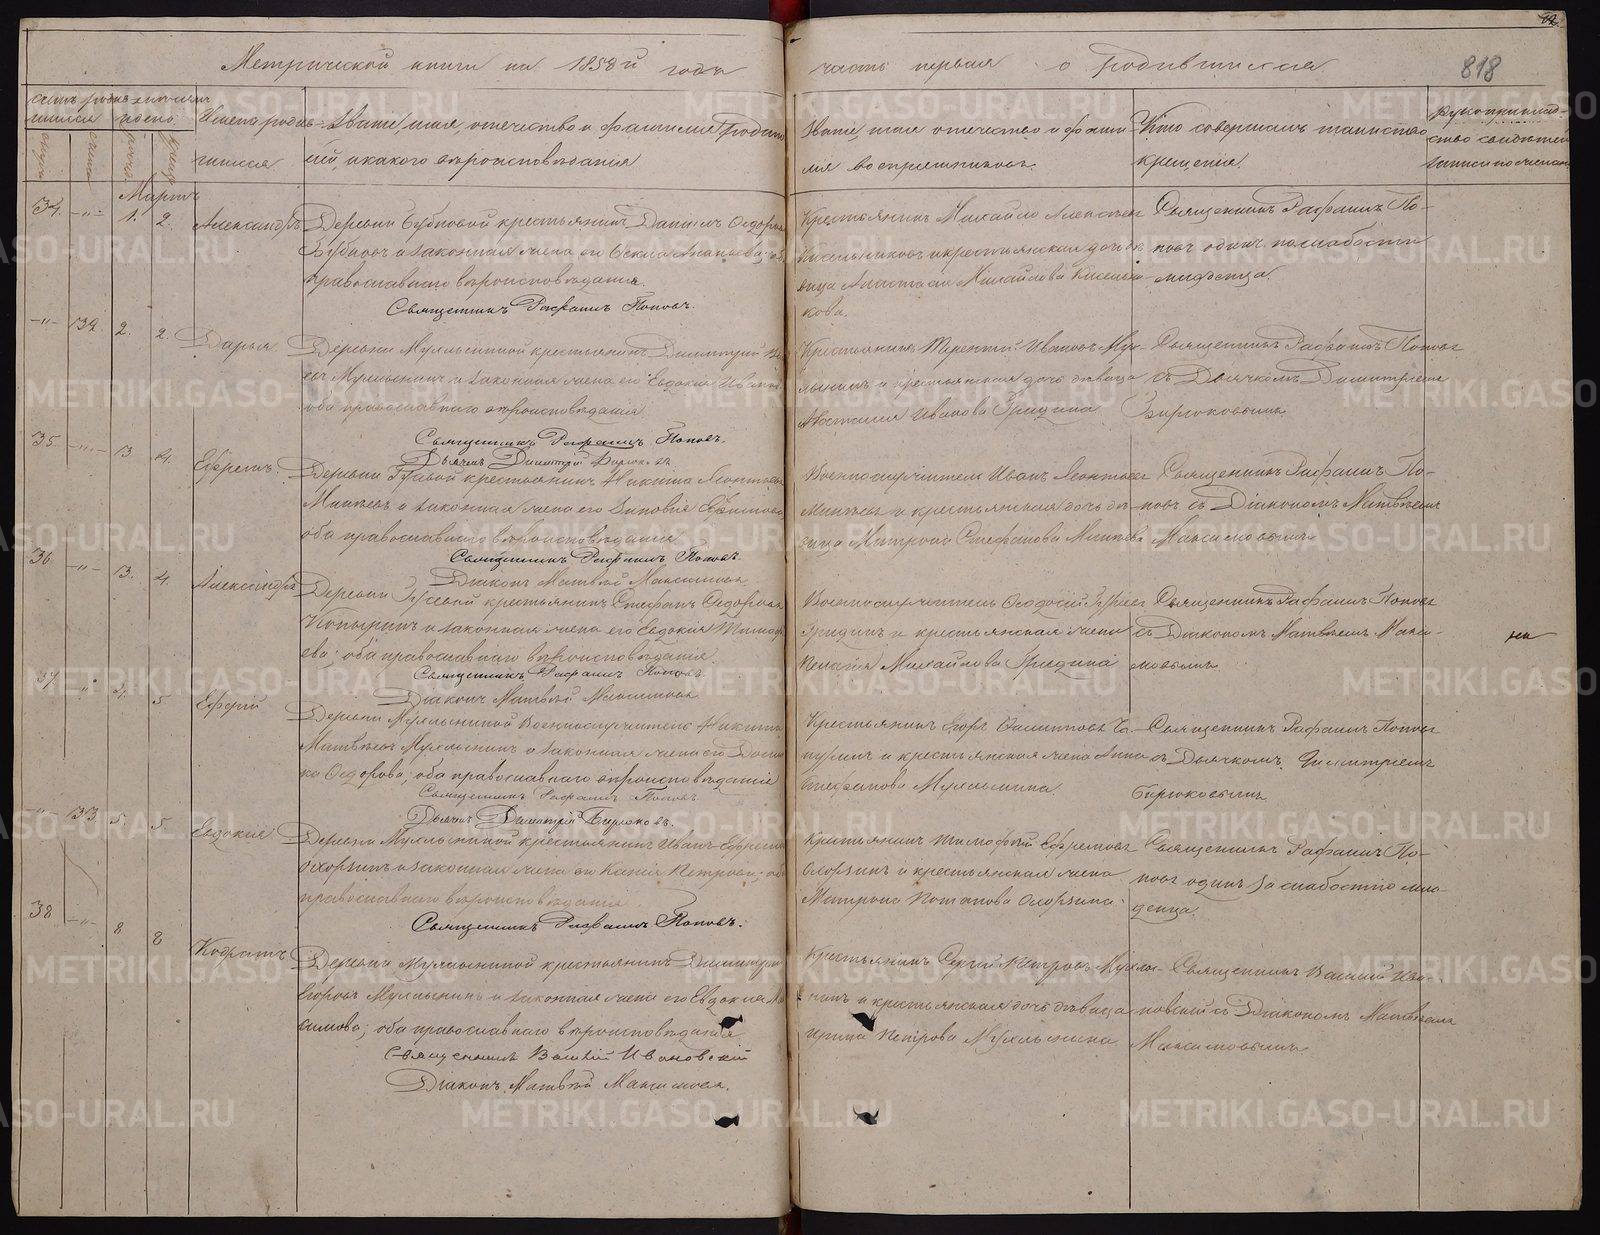 Метрической книги на 1858й годъ
часть первая о родившихся
818
Имена родив-
шихся
Званіе, имя, отечество и фамилія родите-
лей, и какого вѣроисповѣданія
Званіе, имя отечество и фами-
лія воспріемниковъ.
Кто совершалъ таинство
крещенія.
Мартъ
34. -„- 1. 2. Александръ
Деревни Бубновой крестьянинъ Даніилъ Ѳедоровъ
Бубновъ и законная жена его Ѳекла Ананьева; оба
православнаго вѣроисповѣданія.
Священникъ Рафаилъ Поповъ.
Крестьянинъ Михайло Алексѣевъ
Кисельниковъ и крестьянская дочь дѣ-
вица Анастасія Михайлова Кисельни-
кова.
Священникъ Рафаилъ По-
повъ одинъ по слабости
младенца.
-„- 32. 2. 2. Дарья
Деревни Мухлыниной крестьянинъ Димитрій
Мухлынинъ и законная жена его Евдокія Иванова
оба православнаго вѣроисповѣданія.
Священникъ Рафаилъ Поповъ.
Дьячекъ Димитрій Бирюковъ
Крестьянинъ Терентій Ивановъ Мух-
лынинъ и крестьянская дочь дѣвица
Анастасія Иванова Гридина
Священникъ Рафаилъ Поповъ
съ Дьячкомъ Димитріемъ
Бирюковымъ
35. -„- 3 4. Ефремъ
Деревни Гусевой крестьянинъ Никита Леонтьевъ
Минѣевъ и законная жена его Зиновія Ефимова
оба православнаго вѣроисповѣданія
Священникъ Рафаилъ Поповъ.
Діаконъ Матвѣй Максимовъ
Военнослужитель Иванъ Леонтьевъ
Минѣевъ и крестьянская дочь дѣ-
вица Матрона Стефанова Минѣева
Священникъ Рафаилъ По-
повъ съ Діакономъ Матвѣемъ
Максимовымъ
36 -„- 3. 4. Александръ
Деревни Гусевой крестьянинъ Стефанъ Ѳедоровъ
Копыринъ и законная жена его Евдокія Тимоѳ-
еева; оба православнаго вѣроисповѣданія.
Священникъ Рафаилъ Поповъ.
Діаконъ Матвѣй Максимовъ
Военнослужитель Ѳеодосій
Гридинъ и крестьянская жена
Пелагія Михайлова Гридина
Священникъ Рафаилъ Поповъ
съ Діакономъ Матвѣемъ Макси-
мовымъ
на
37. „ 4. 5 Ефрій
Деревни Мухлыниной Военнослужитель Никита
Матвѣевъ Мухлынинъ и законная жена его
Ѳедорова; оба православнаго вѣроисповѣданія
Священникъ Рафаилъ Поповъ
Дьячекъ Димитрій Бирюковъ.
Крестьянинъ Егоръ Филипповъ
и крестьянская жена Анна
Стефанова Мухлынина.
Священникъ Рафаилъ Поповъ
съ Дьячкомъ Димитріемъ
Бирюковымъ
-„- 33 5. 5. Евдокія
Деревни Мухлыниной крестьянинъ Иванъ Ефремовъ
и законная жена его Ксенія Петрова; оба
православнаго вѣроисповѣданія.
Священникъ Рафаилъ Поповъ.
Крестьянинъ Тимофей Ефремовъ
и крестьянская жена
Матрона Потапова
Священникъ Рафаилъ По-
повъ одинъ за слабостію мла-
денца.
38 -„- 8 8 Кодратъ
Деревни Мухлыниной крестьянинъ Димитрій
Егоровъ Мухлынинъ и законная жена его Евдокія Мак-
симова; оба православнаго вѣроисповѣданія
Священникъ Василій Ивановскій
Діаконъ Матвѣй Максимовъ.
Крестьянинъ Сергій Петровъ Мухлы-
нинъ и крестьянская дочь дѣвица
Ирина Петрова Мухлынина
Священникъ Василій Ива-
новскій съ Діакономъ Матвѣемъ
Максимовымъ
METRIKI.GASO-URAL.RU